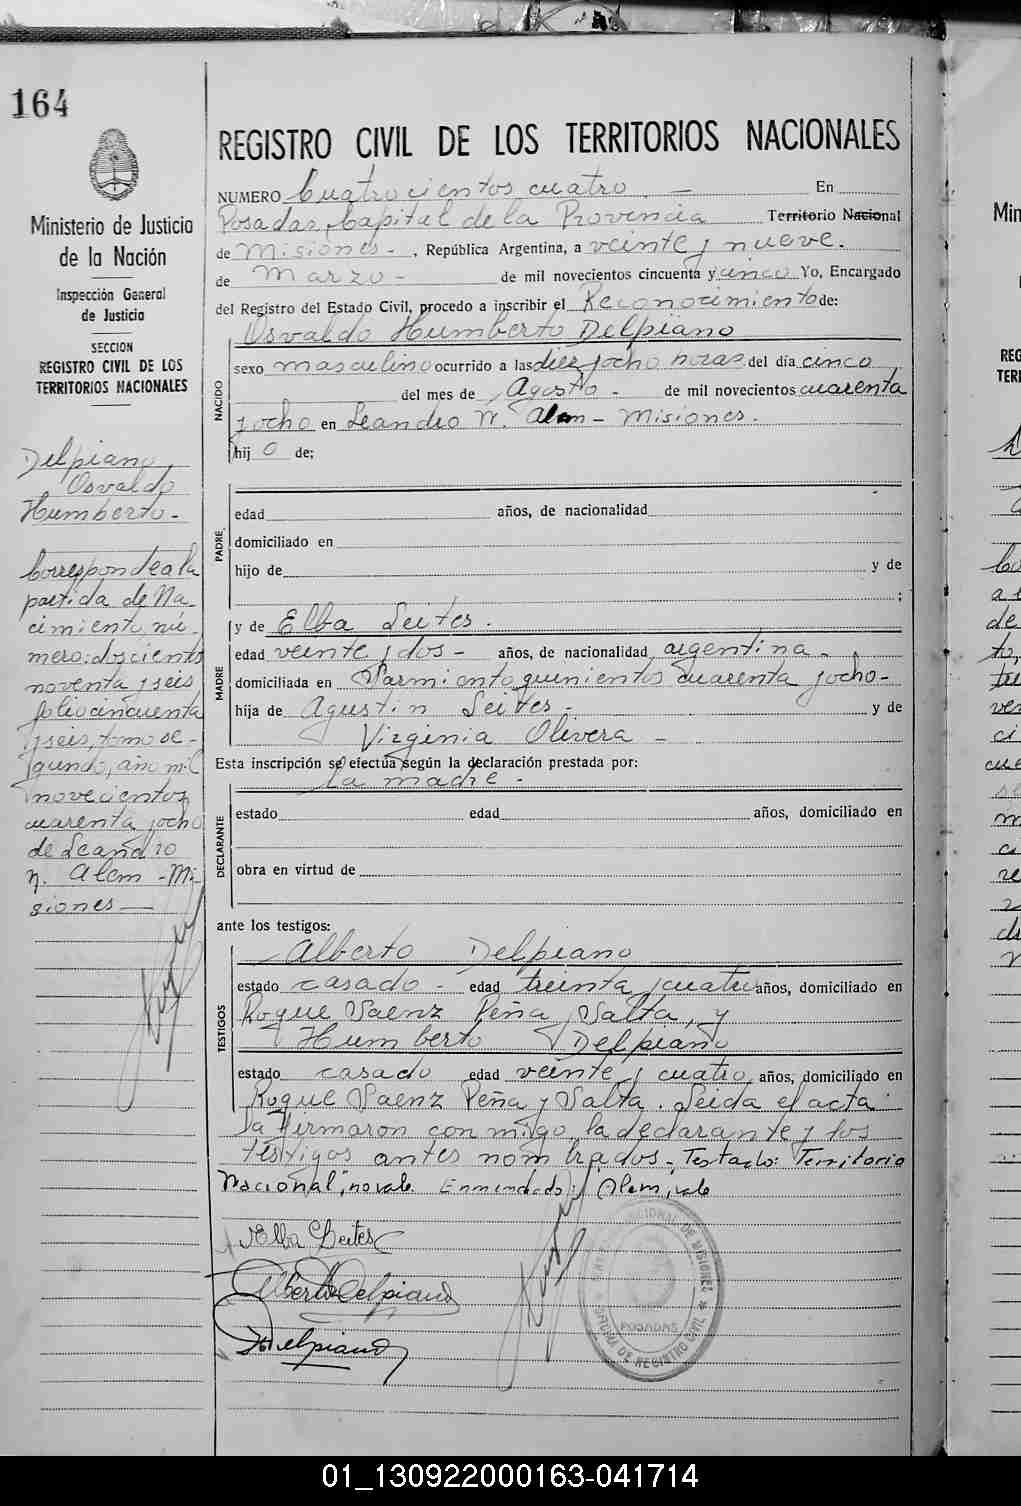 164
Ministerio de Justicia
de la Nación
Inspección General
de Justicia
SECCION
REGISTRO CIVIL DE LOS
TERRITORIOS NACIONALES
Delpiano,
Osvaldo
Humberto-
Corresponde a la
partida de Na-
cimiento nú-
mero: doscientos
noventa y seis
folio cincuenta
y seis, tomo se-
gundo, año mil
novecientos
cuarenta y ocho
de Leandro
N. Alem - Mi-
siones —
REGISTRO CIVIL DE LOS TERRITORIOS NACIONALES
NUMERO Cuatrocientos cuatro — En
Posadas, Capital de la Provincia Territorio Nacional
de Misiones - , República Argentina, a veinte y nueve.
de Marzo - de mil novecientos cincuenta y cinco Yo, Encargado
del Registro del Estado Civil, procedo a inscribir el Reconocimiento de:
Osvaldo Humberto Delpiano
NACIDO
sexo masculino ocurrido a las diez y ocho horas del día cinco
del mes de Agosto - de mil novecientos cuarenta
y ocho en Leandro N. Alem - Misiones.
hij o de;
PADRE
edad años, de nacionalidad
domiciliado en
hijo de y de
;
MADRE
y de Elba Leites.
edad veinte y dos - años, de nacionalidad argentina -
domiciliada en Sarmiento quinientos cuarenta y ocho-
hija de Agustin Leites - y de
Virginia Olivera -
Esta inscripción se efectúa según la declaración prestada por:
la madre -
DECLARANTE
estado edad años, domiciliado en
obra en virtud de
ante los testigos:
TESTIGOS
Alberto Delpiano
estado casado - edad treinta y cuatro años, domiciliado en
Roque Saenz Peña y Salta, y
Humberto Delpiano
estado casado edad veinte y cuatro años, domiciliado en
Roque Saenz Peña y Salta. Leida el acta
la firmaron conmigo, la declarante y los
testigos antes nombrados -, Testado: Territorio
Nacional, no vale. Enmendado: Alem, vale
Elba Leites
Alberto Delpiano
H Delpiano
NACIONAL DE MISIONES
POSADAS
OFICINA DE REGISTRO CIVIL
01_130922000163-041714